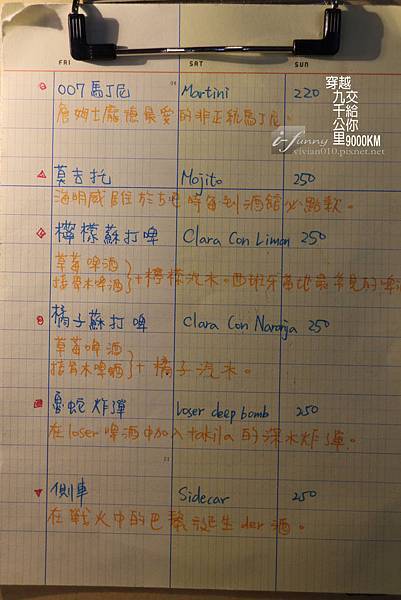 FRI SAT SUN
007馬丁尼 Martini 220
詹姆士龐德最愛的非正統馬丁尼。
穿越九千公里
交給你
9000KM
i-Funny
vivian010.pixnet.net
莫吉托 Mojito 250
海明威居住於古巴時每到酒館必點款。
檸檬蘇打啤 Clara Con Limon 250
草莓啤酒
接骨木啤酒 }+檸檬汽水。西班牙當地最常見的啤酒
橘子蘇打啤 Clara Con Naranja 250
草莓啤酒
接骨木啤酒 }+橘子汽水。
魯蛇炸彈 loser deep bomb 250
在loser啤酒中加入takila的深水炸彈。
側車 Sidecar 250
在戰火中的巴黎誕生der酒。